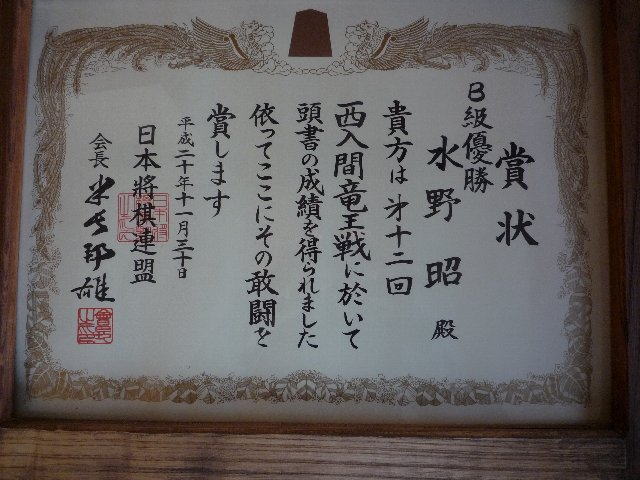 賞状
B級優勝
水野昭殿
貴方は第十二回
西入間竜王戦に於いて
頭書の成績を得られました
依ってここにその敢闘を
賞します
平成二十年十一月三十日
日本將棋連盟
会長 米長邦雄